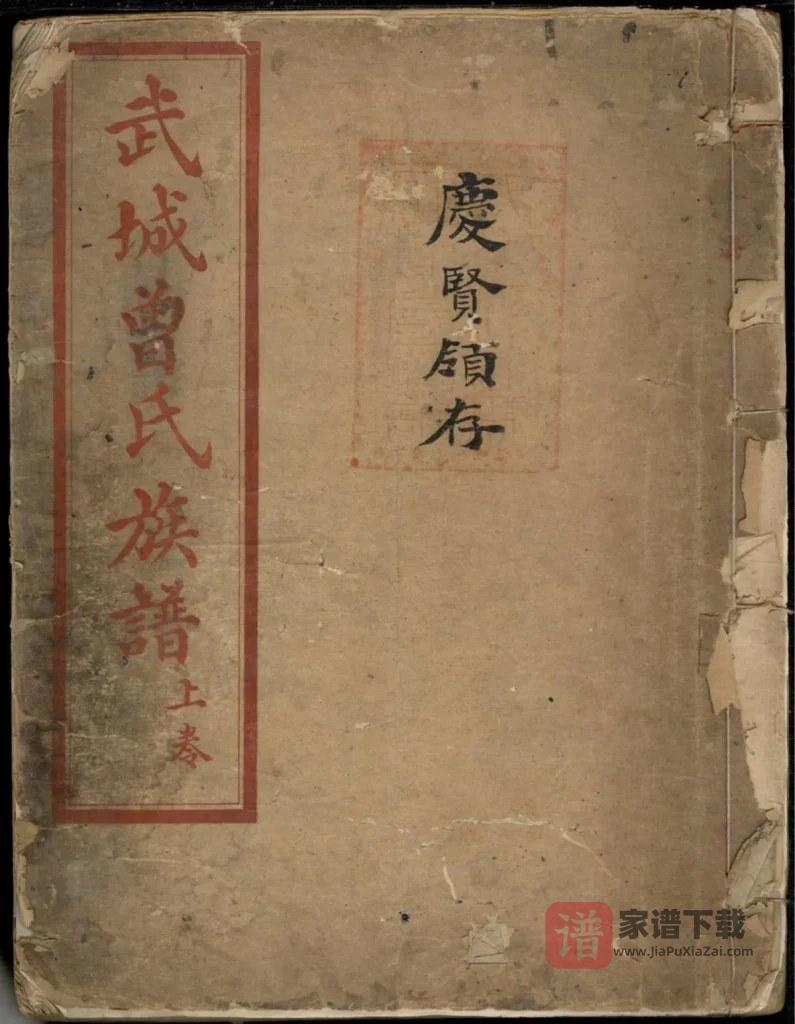 武城曾氏族譜
上卷
慶賢領存
谱
家谱下载
www.JiaPuXiaZai.com